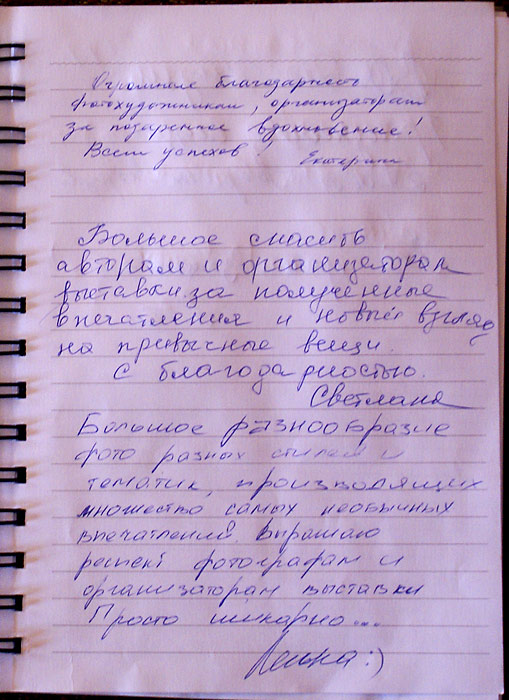 Огромная благодарность
фотохудожникам, организаторам
за подаренное вдохновение!
Всем успехов!
Екатерина
Большое спасибо
авторам и организаторам
выставки за полученные
впечатления и новый взгляд
на привычные вещи.
С благодарностью.
Светлана
Большое разнообразие
фото разных стилей и
тематик, производящих
множество самых необычных
впечатлений. Выражаю
респект фотографам и
организаторам выставки
Просто шикарно...
:)